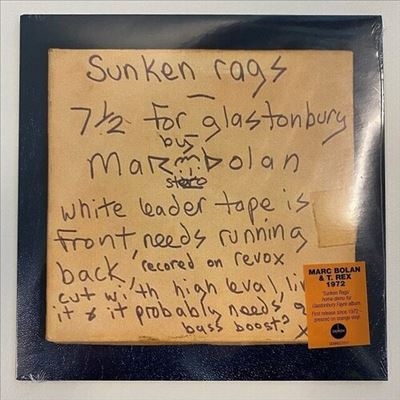 Sunken rags
7½ for glastonbury
by
Marc Bolan
stereo
white leader tape is
front needs running
back, recored on revox
cut with high leval, li
it & it probably needs a
bass boost? x
MARC BOLAN
& T. REX
1972
'Sunken Rags'
home demo for
Glastonbury Fayre album.
First release since 1972 -
pressed on orange vinyl.
DEMON